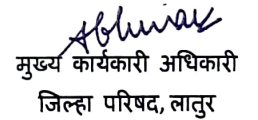 मुख्य कार्यकारी अधिकारी
जिल्हा परिषद, लातुर